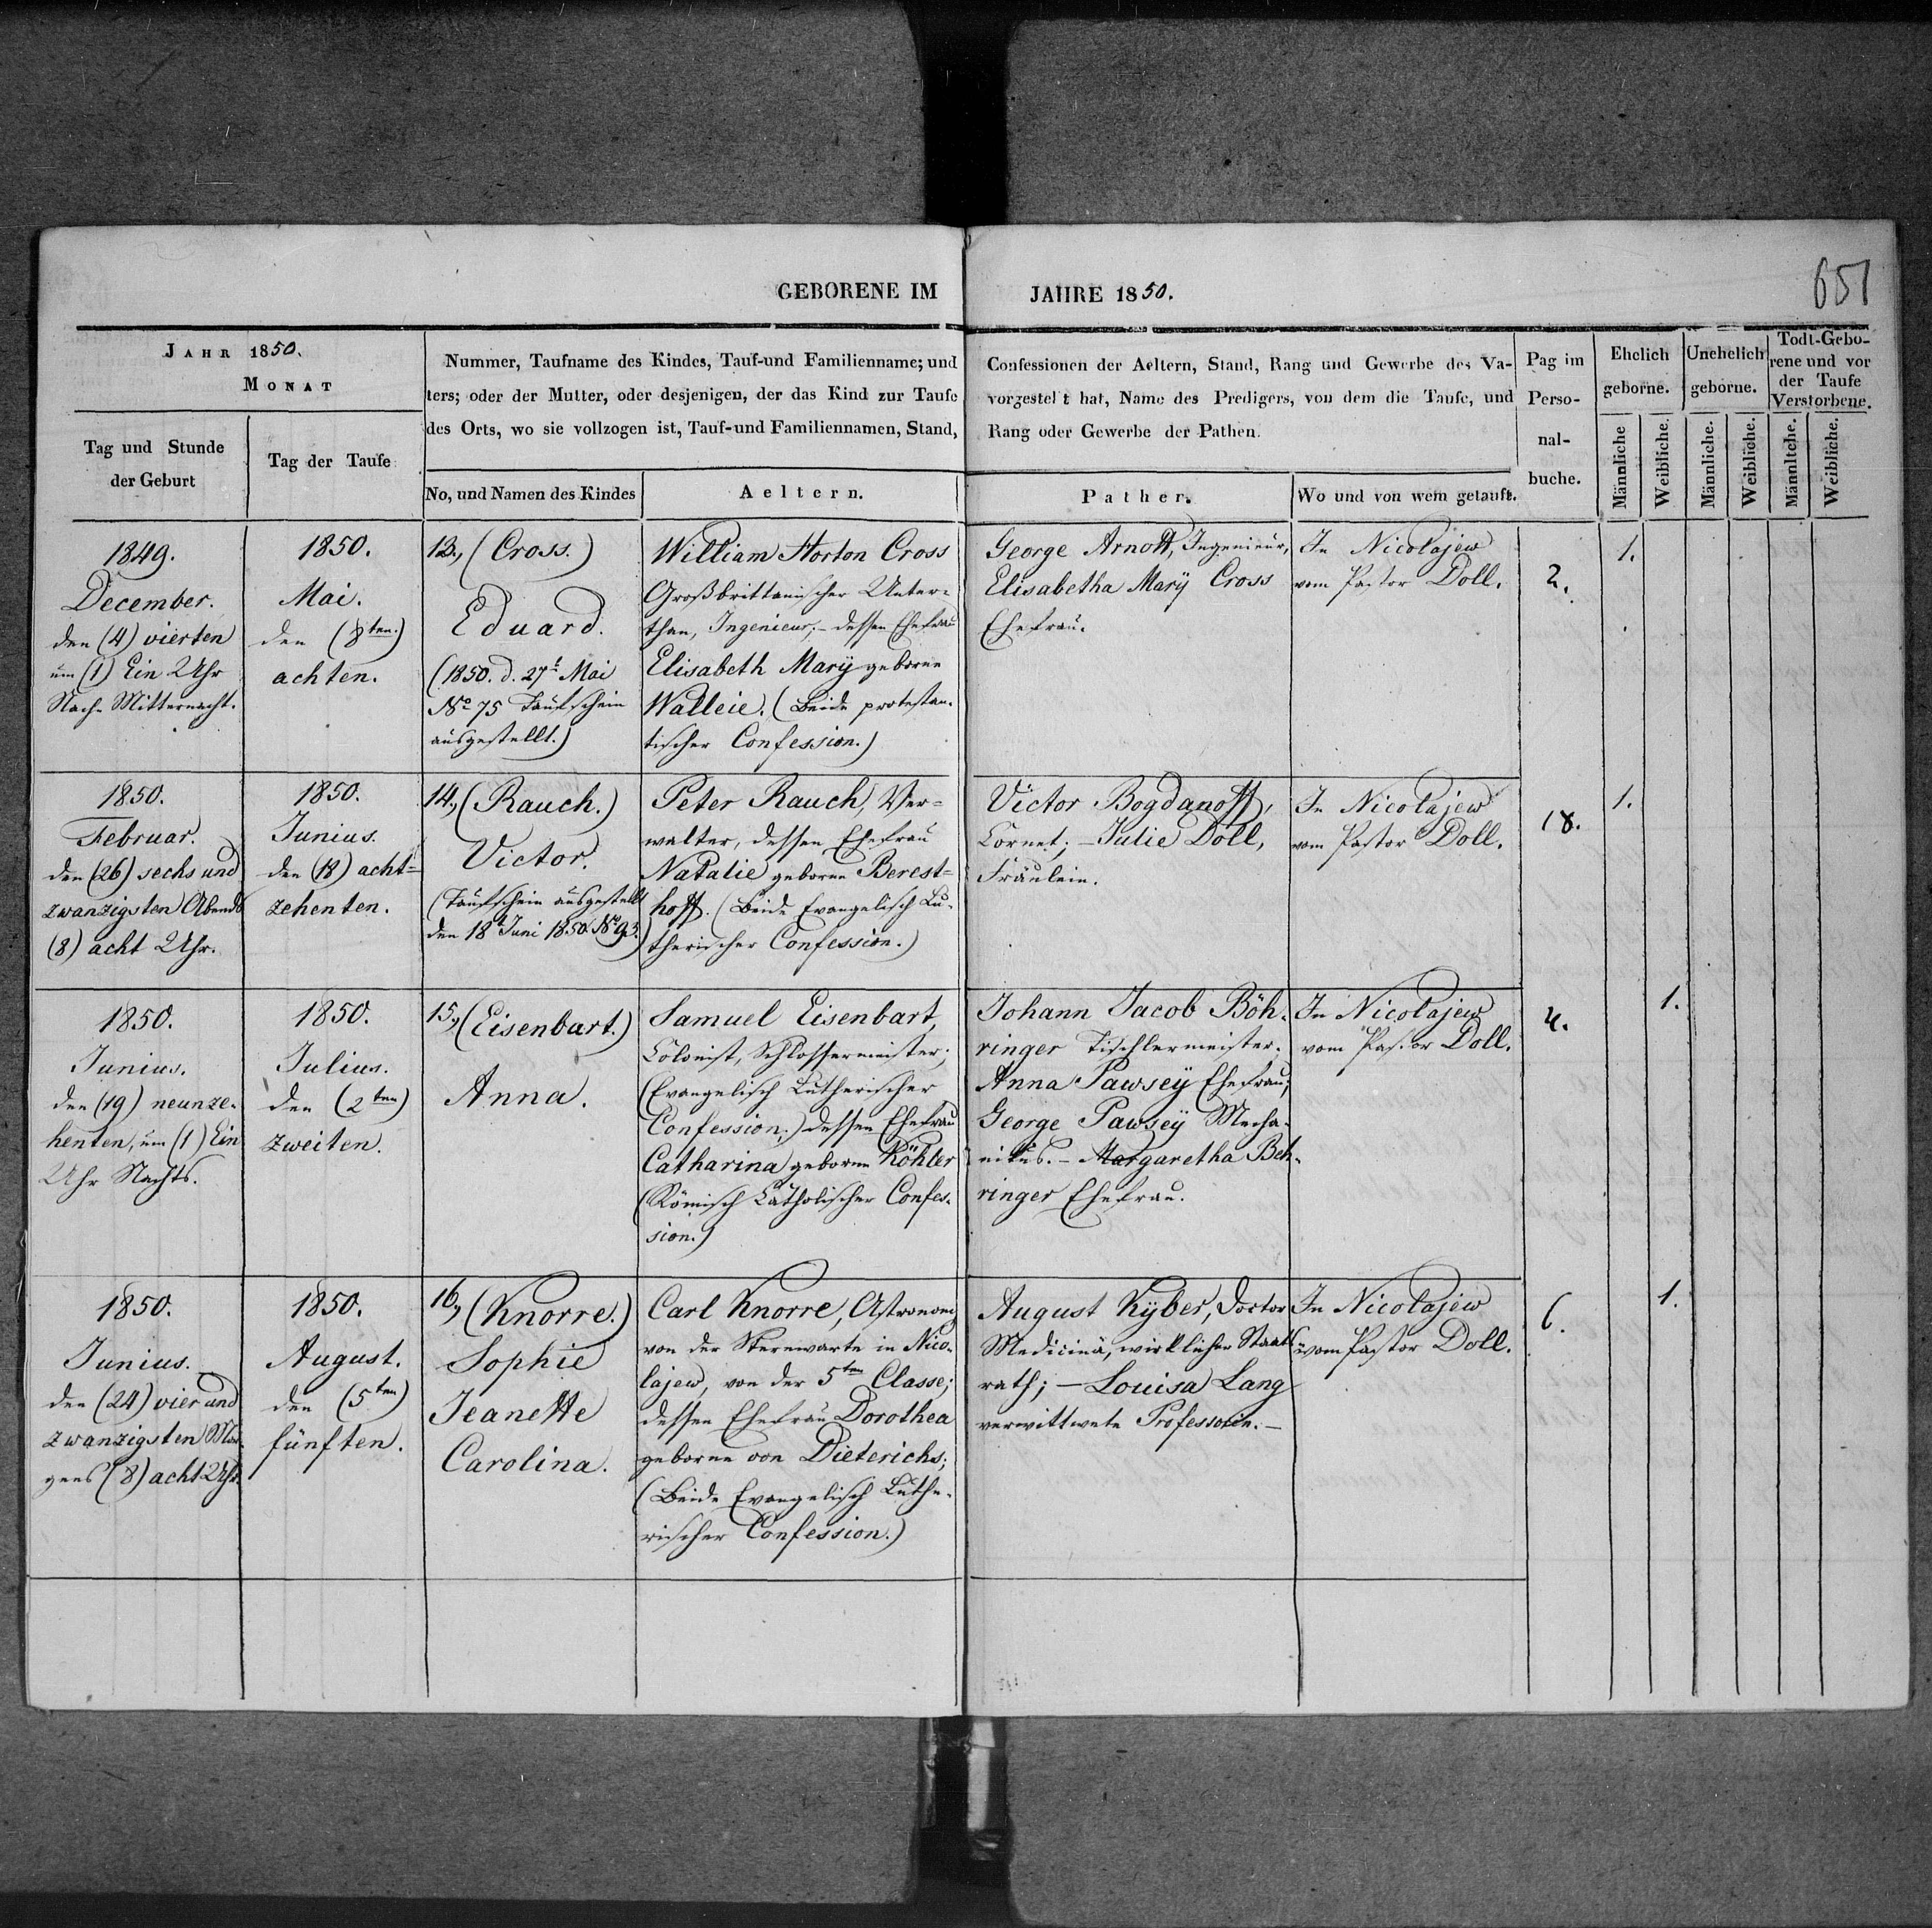 651
GEBORENE IM JAHRE 1850.
JAHR 1850.
MONAT
Tag und Stunde
der Geburt
Tag der Taufe
Nummer, Taufname des Kindes, Tauf-und Familienname; und
ters; oder der Mutter, oder desjenigen, der das Kind zur Taufe
des Orts, wo sie vollzogen ist, Tauf-und Familiennamen, Stand,
No, und Namen des Kindes
Aeltern.
Confessionen der Aeltern, Stand, Rang und Gewerbe des Va-
vorgestellt hat, Name des Predigers, von dem die Taufe, und
Rang oder Gewerbe der Pathen.
Pather.
Wo und von wem getauft.
Pag im
Perso-
nal-
buche.
Ehelich
geborne.
Unehelich
geborne.
Todt-Gebo-
rene und vor
der Taufe
Verstorbene.
Männliche
Weibliche.
Männliche.
Weibliche.
Männliche.
Weibliche.
1849.
December.
den (4) vierten
um (1) Ein Uhr
Nach Mitternacht.
1850.
Mai.
den (8ten)
achten.
13., (Cross.)
Eduard.
(1850. d. 27t Mai
No 75 Taufschein
ausgestellt.)
William Horton Cross
Großbrittanischer Unter-
than, Ingenieur; - dessen Ehefrau
Elisabeth Marÿ geborne
Walleie. (Beide protestan-
tischer Confession.)
George Arnott, Ingenieur,
Elisabetha Marÿ Cross
Ehefrau.
In Nicolajew
vom Pastor Doll.
2.
1.
1850.
Februar.
den (26) sechs und
zwanzigsten Abends
(8) acht Uhr.
1850.
Junius.
den (18) acht-
zehenten.
14., (Rauch.)
Victor.
(Taufschein ausgestellt
den 18t Juni 1850. No 93.)
Peter Rauch, Ver-
walter, dessen Ehefrau
Natalie geborne Berest-
hoff. (Beide Evangelisch Lu-
therischer Confession.)
Victor Bogdanoff,
Cornet; - Julie Doll,
Fräulein.
In Nicolajew
vom Pastor Doll.
18.
1.
1850.
Junius.
den (19) neunze-
henten, um (1) Ein
Uhr Nachts.
1850.
Julius.
den (2ten)
zweiten.
15., (Eisenbart.)
Anna.
Samuel Eisenbart,
Colonist, Schlossermeister;
(Evangelisch Lutherischer
Confession;) dessen Ehefrau
Catharina geborne Köhler
(Römisch Catholischer Confes-
sion.)
Johann Jacob Böh-
ringer Tischlermeister.
Anna Pawseÿ Ehefrau;
George Pawseÿ Mecha-
nikus. - Margaretha Beh-
ringer Ehefrau.
In Nicolajew
vom Pastor Doll.
4.
1.
1850.
Junius.
den (24) vier und
zwanzigsten Mor-
gens (8) acht Uhr.
1850.
August.
den (5ten)
fünften.
16., (Knorre.)
Sophie
Jeanette
Carolina.
Carl Knorre, Astronom
von der Sternwarte in Nico-
lajew, von der 5ten Classe;
dessen Ehefrau Dorothea
geborne von Dieterichs;
(Beide Evangelisch Luthe-
rischer Confession.)
August Kÿber, Doctor
Medicinä, wirklicher Staats-
rath; - Louisa Lang
verwittwete Professorin. -
In Nicolajew
vom Pastor Doll.
6.
1.